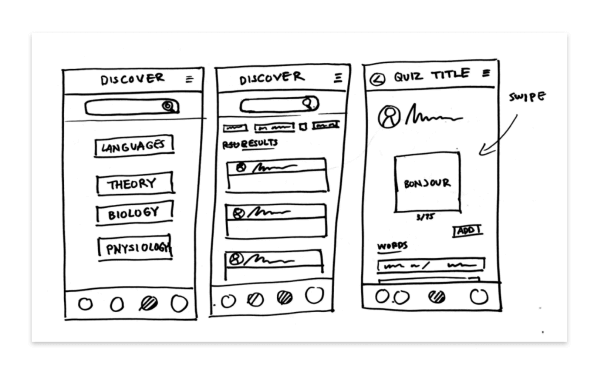 DISCOVER
LANGUAGES
THEORY
BIOLOGY
PHYSIOLOGY
DISCOVER
RESULTS
QUIZ TITLE
BONJOUR
3/75
ADD
WORDS
SWIPE